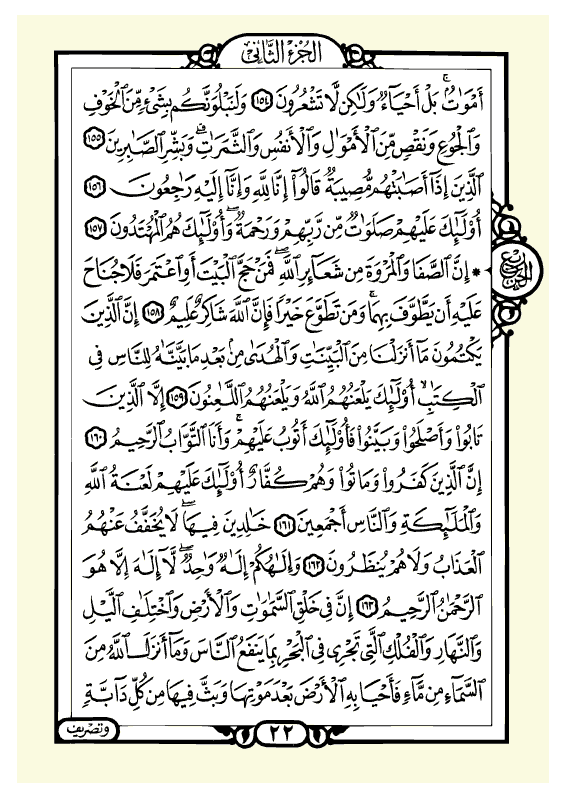 الجزء الثاني
أَمْوَٰتٌۢۚ بَلْ أَحْيَآءٌ وَلَٰكِن لَّا تَشْعُرُونَ ١٥٤ وَلَنَبْلُوَنَّكُم بِشَىْءٍ مِّنَ ٱلْخَوْفِ
وَٱلْجُوعِ وَنَقْصٍ مِّنَ ٱلْأَمْوَٰلِ وَٱلْأَنفُسِ وَٱلثَّمَرَٰتِۗ وَبَشِّرِ ٱلصَّٰبِرِينَ ١٥٥
ٱلَّذِينَ إِذَآ أَصَٰبَتْهُم مُّصِيبَةٌ قَالُوٓا۟ إِنَّا لِلَّهِ وَإِنَّآ إِلَيْهِ رَٰجِعُونَ ١٥٦
أُو۟لَٰٓئِكَ عَلَيْهِمْ صَلَوَٰتٌ مِّن رَّبِّهِمْ وَرَحْمَةٌۖ وَأُو۟لَٰٓئِكَ هُمُ ٱلْمُهْتَدُونَ ١٥٧
* إِنَّ ٱلصَّفَا وَٱلْمَرْوَةَ مِن شَعَآئِرِ ٱللَّهِۖ فَمَنْ حَجَّ ٱلْبَيْتَ أَوِ ٱعْتَمَرَ فَلَا جُنَاحَ
عَلَيْهِ أَن يَطَّوَّفَ بِهِمَاۚ وَمَن تَطَوَّعَ خَيْرًا فَإِنَّ ٱللَّهَ شَاكِرٌ عَلِيمٌ ١٥٨ إِنَّ ٱلَّذِينَ
يَكْتُمُونَ مَآ أَنزَلْنَا مِنَ ٱلْبَيِّنَٰتِ وَٱلْهُدَىٰ مِنۢ بَعْدِ مَا بَيَّنَّٰهُ لِلنَّاسِ فِى
ٱلْكِتَٰبِۙ أُو۟لَٰٓئِكَ يَلْعَنُهُمُ ٱللَّهُ وَيَلْعَنُهُمُ ٱللَّٰعِنُونَ ١٥٩ إِلَّا ٱلَّذِينَ
تَابُوا۟ وَأَصْلَحُوا۟ وَبَيَّنُوا۟ فَأُو۟لَٰٓئِكَ أَتُوبُ عَلَيْهِمْۚ وَأَنَا ٱلتَّوَّابُ ٱلرَّحِيمُ ١٦٠
إِنَّ ٱلَّذِينَ كَفَرُوا۟ وَمَاتُوا۟ وَهُمْ كُفَّارٌ أُو۟لَٰٓئِكَ عَلَيْهِمْ لَعْنَةُ ٱللَّهِ
وَٱلْمَلَٰٓئِكَةِ وَٱلنَّاسِ أَجْمَعِينَ ١٦١ خَٰلِدِينَ فِيهَاۖ لَا يُخَفَّفُ عَنْهُمُ
ٱلْعَذَابُ وَلَا هُمْ يُنظَرُونَ ١٦٢ وَإِلَٰهُكُمْ إِلَٰهٌ وَٰحِدٌۖ لَّآ إِلَٰهَ إِلَّا هُوَ
ٱلرَّحْمَٰنُ ٱلرَّحِيمُ ١٦٣ إِنَّ فِى خَلْقِ ٱلسَّمَٰوَٰتِ وَٱلْأَرْضِ وَٱخْتِلَٰفِ ٱلَّيْلِ
وَٱلنَّهَارِ وَٱلْفُلْكِ ٱلَّتِى تَجْرِى فِى ٱلْبَحْرِ بِمَا يَنفَعُ ٱلنَّاسَ وَمَآ أَنزَلَ ٱللَّهُ مِنَ
ٱلسَّمَآءِ مِن مَّآءٍ فَأَحْيَا بِهِ ٱلْأَرْضَ بَعْدَ مَوْتِهَا وَبَثَّ فِيهَا مِن كُلِّ دَآبَّةٍ
وتصريف
٢٢
ربع
الحزب